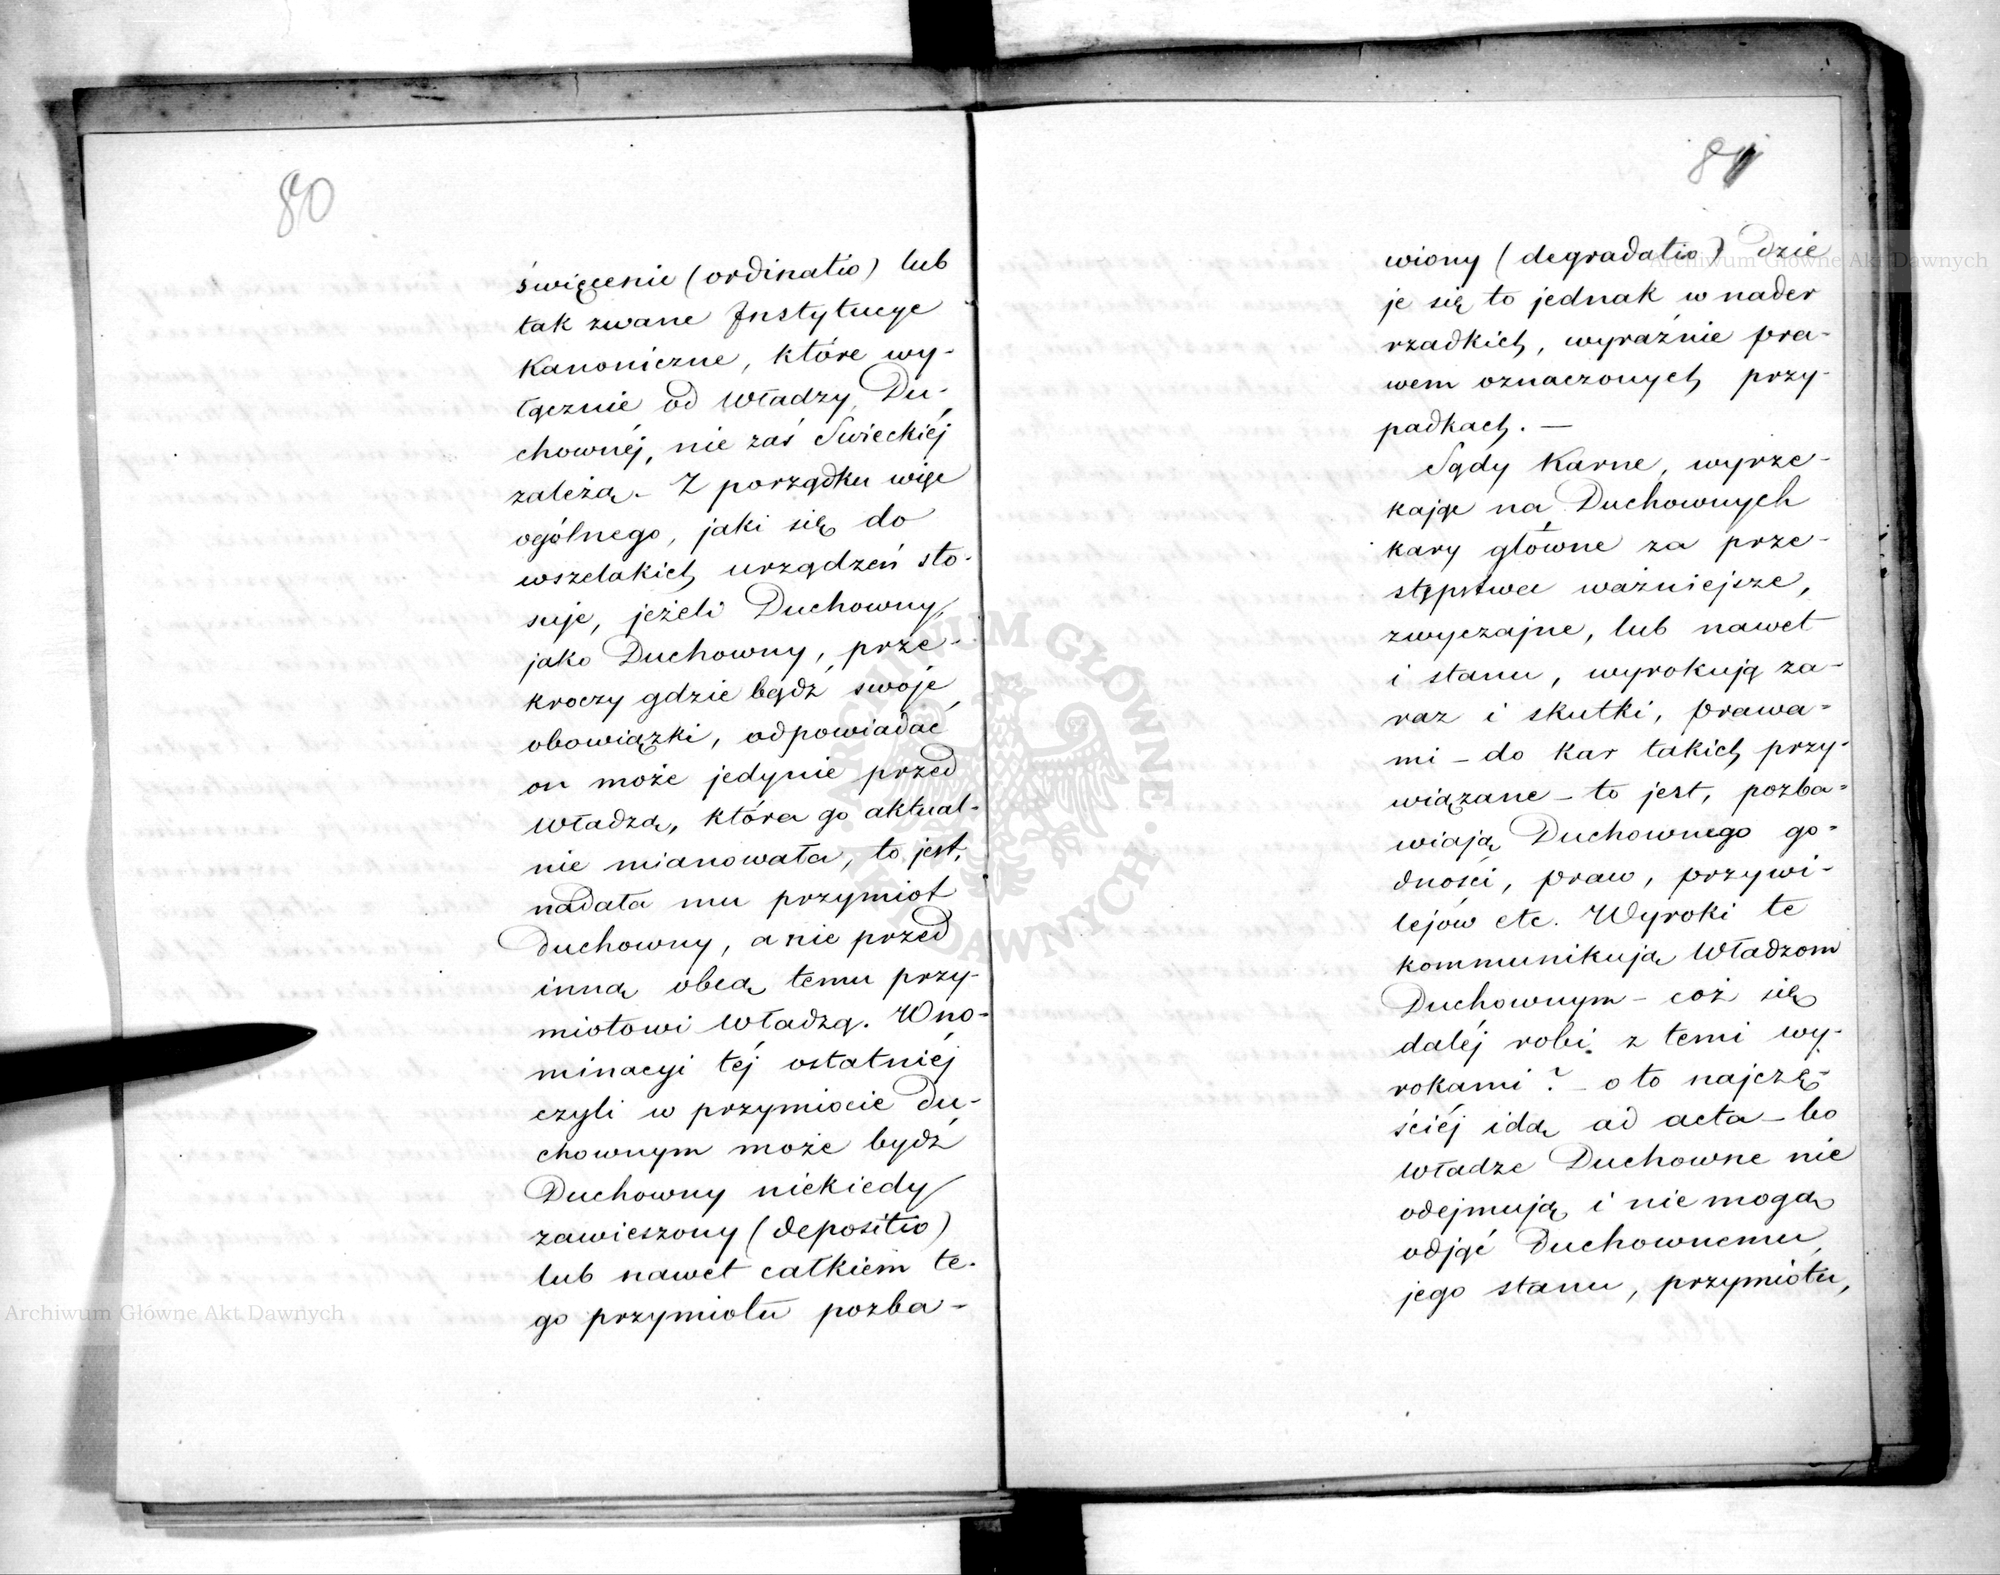 80
święcenie (ordinatio) lub
tak zwane Instytucye
Kanoniczne, które wy-
łącznie od Władzy Du-
chownéj, nie zaś Swieckiéj
zależą. Z porządku więc
ogólnego, jaki się do
wszelakich urządzeń sto-
suje, jeżeli Duchowny,
jako Duchowny, prze-
kroczy gdzie bądź swoje
obowiązki, odpowiadać
on może jedynie przed
Władzą, która go aktual-
nie mianowała, to jest,
nadała mu przymiot
Duchowny, a nie przed
inną obcą temu przy-
miotowi Władzą. W no-
minacyi téj ostatniéj
czyli w przymiocie Du-
chownym może bydź
Duchowny niekiedy
zawieszony (depositio)
lub nawet całkiem te-
go przymiotu pozba-
81
wiony (degradatio) Dzie
je się to jednak w nader
rzadkich, wyraźnie pra-
wem oznaczonych przy-
padkach. —
Sądy Karne, wyrze-
kając na Duchownych
kary główne za prze-
stępstwa ważniejsze,
zwyczajne, lub nawet
i stanu, wyrokują za-
raz i skutki, prawa-
mi – do kar takich przy-
wiązane – to jest, pozba-
wiają Duchownego go-
dności, praw, przywi-
lejów etc. Wyroki te
kommunikują Władzom
Duchownym – cóż się
daléj robi z temi wy-
rokami? – oto najczę-
ściéj idą ad acta – bo
Władze Duchowne nie
odejmują i nie mogą
odjąć Duchownemu
jego stanu, przymiotu,
Archiwum Główne Akt Dawnych
Archiwum Główne Akt Dawnych
ARCHIWUM GŁÓWNE AKT DAWNYCH